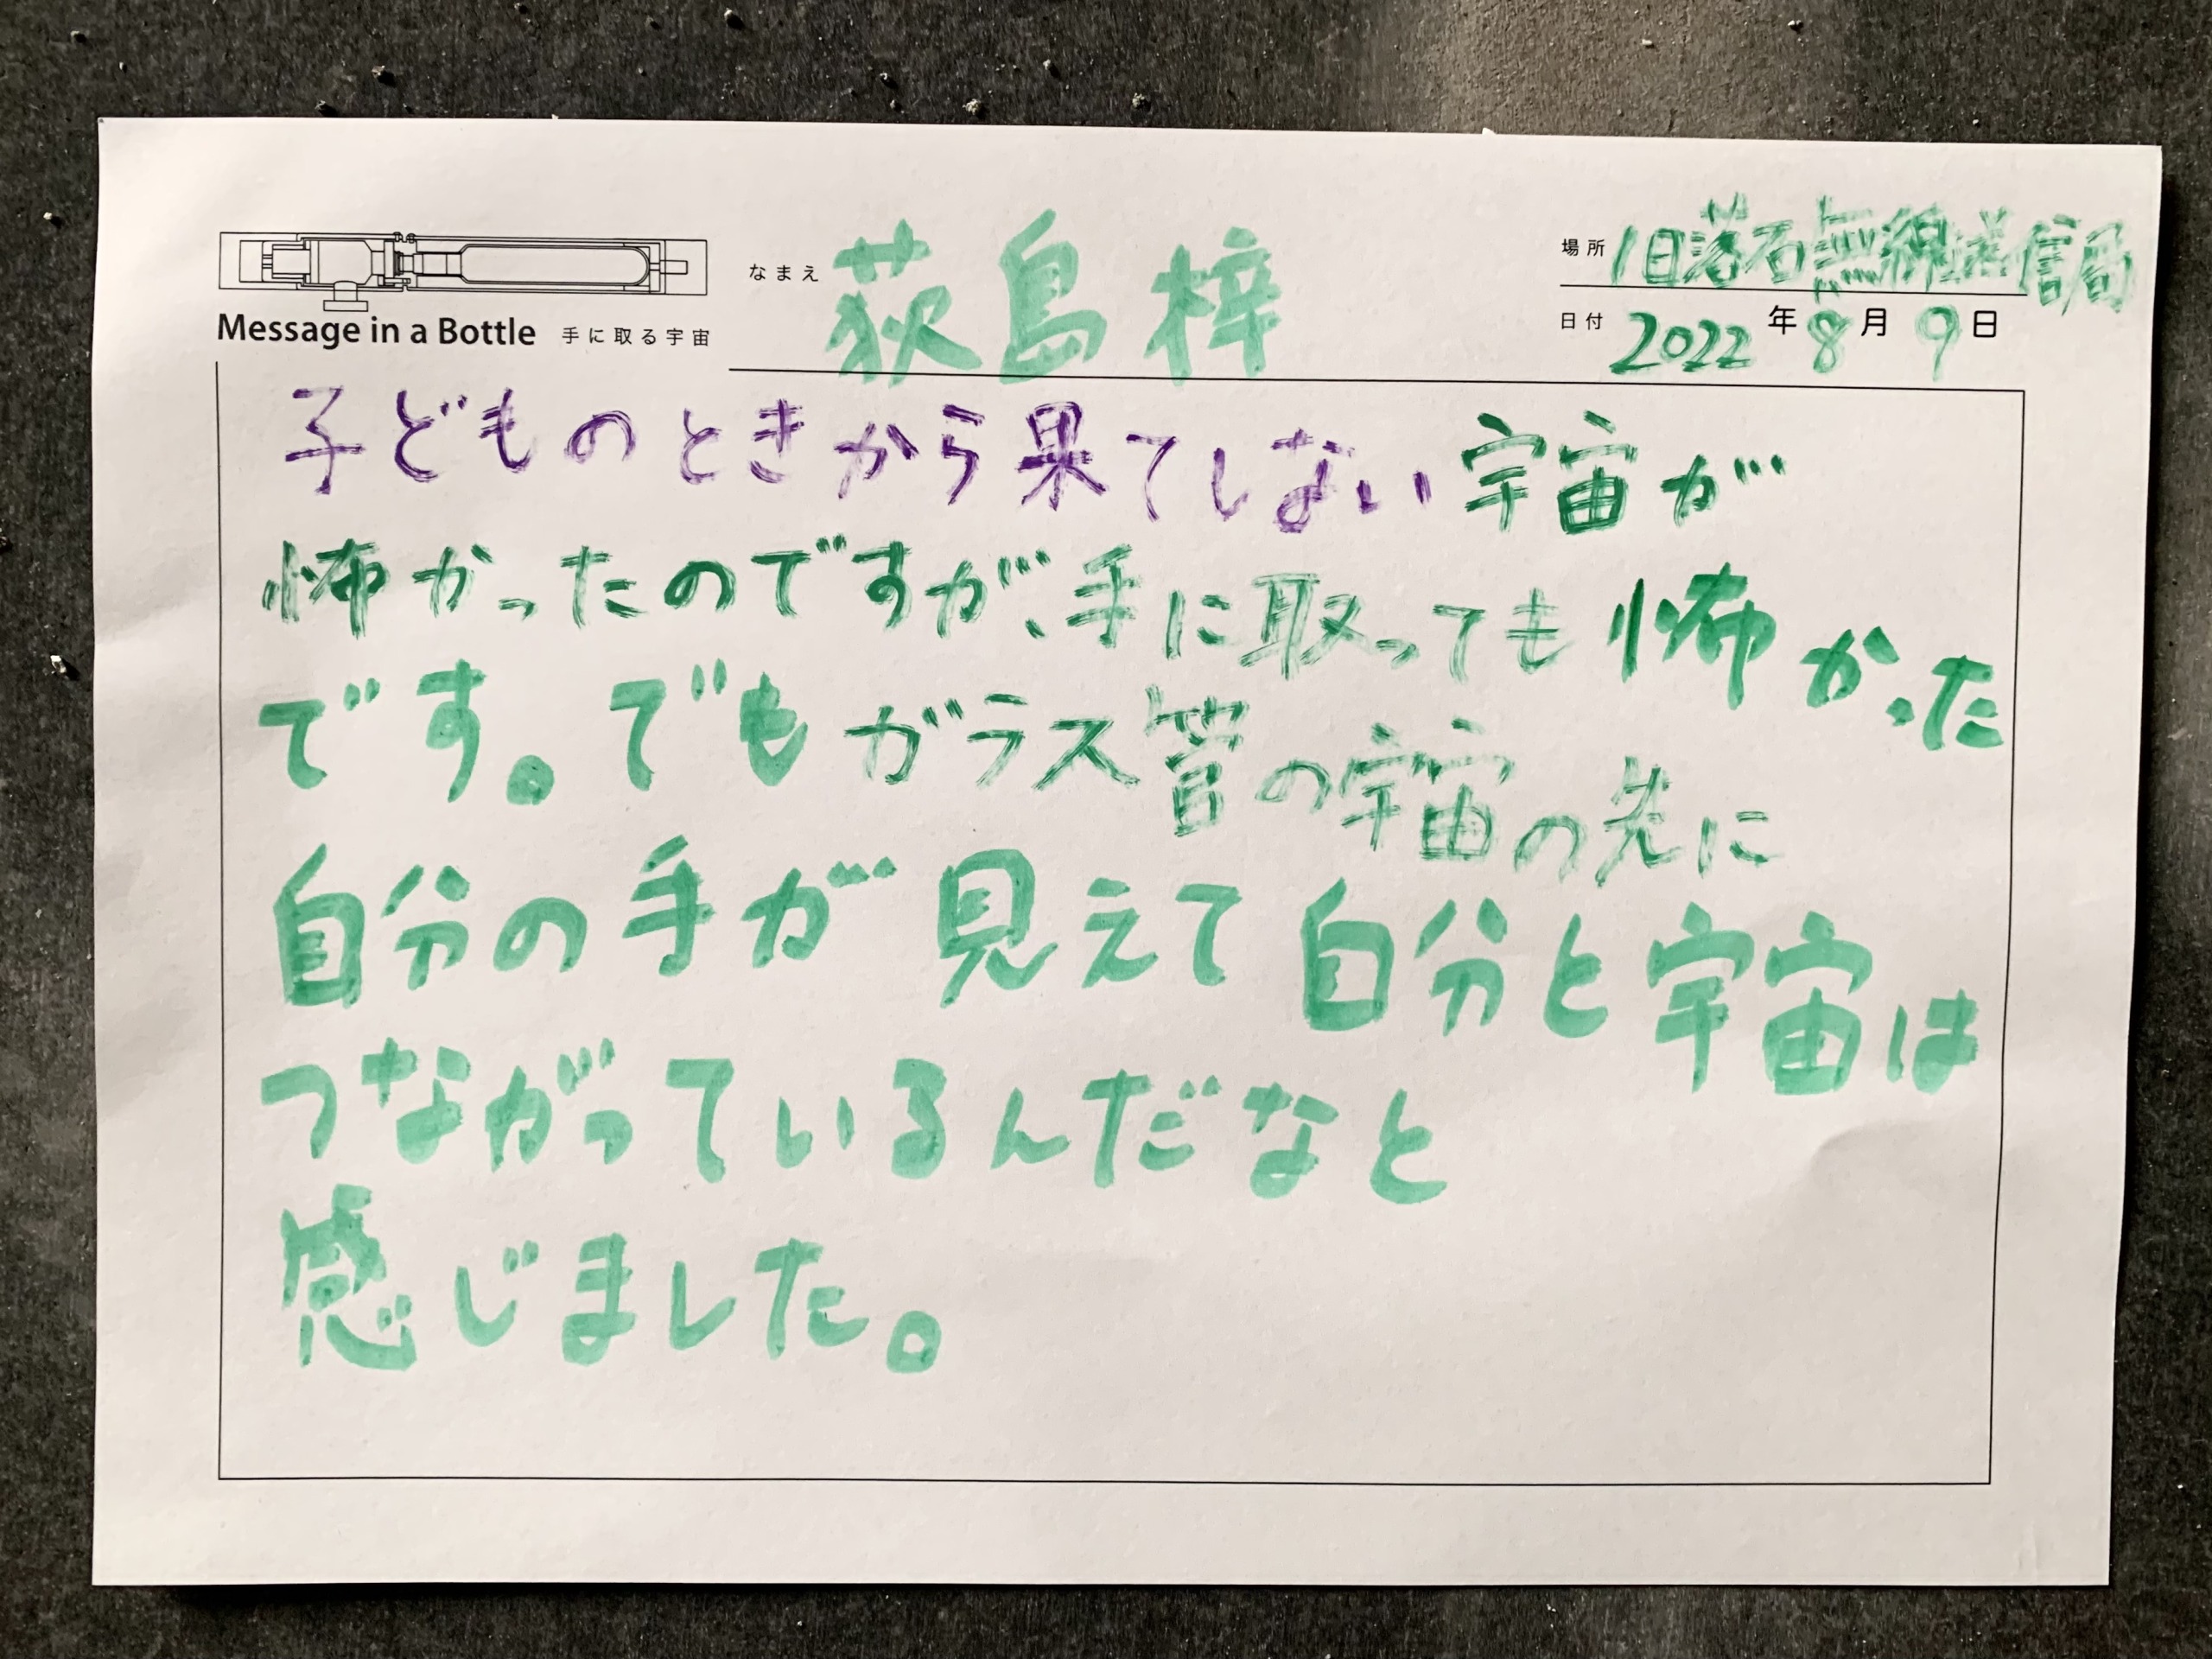 Message in a Bottle 手に取る宇宙
なまえ 荻島 梓
場所 旧落石無線送信局
日付 2022年8月9日
子どものときから果てしない宇宙が
怖かったのですが、手に取っても怖かった
です。でもガラス管の宇宙の先に
自分の手が見えて自分と宇宙は
つながっているんだなと
感じました。